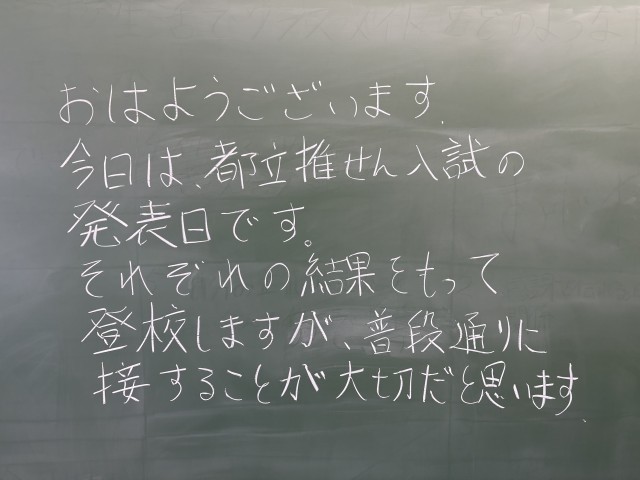 おはようございます.
今日は、都立推せん入試の
発表日です。
それぞれの結果をもって
登校しますが、普段通りに
接することが大切だと思います.